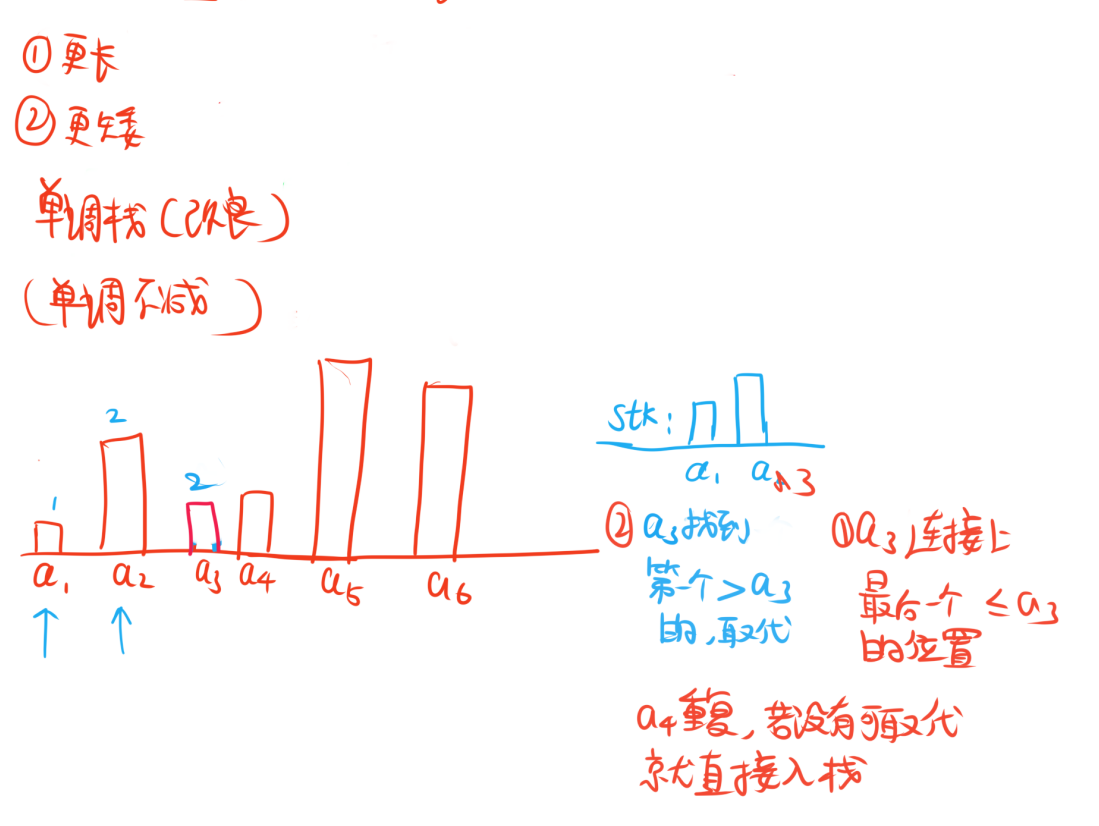 ①更长
②更矮
单调栈(改良)
(单调不减)
2
1
2
a₁ a₂ a₃ a₄ a₅ a₆
stk:
a₁ a₃
②a₃找到
第一个>a₃
的,取代
①a₃连接上
最后一个 ≤a₃
的位置
a₄重复,若没有可取代
就直接入栈